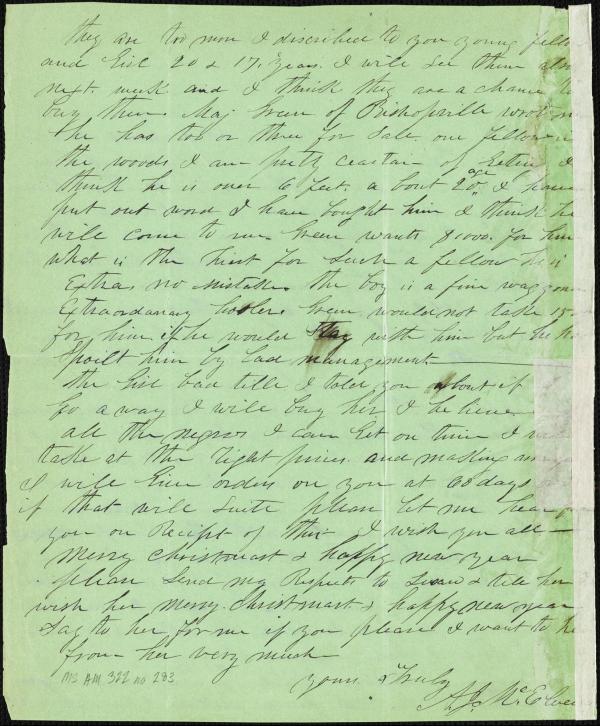 they are too more I discribed to you young fello
and Girl 20 & 17, years. I will see them
next week and I think they are a chance to
buy them Maj Green of Bishopville wrote
he has too or three for sale. one fellow in
the woods I am prety ceartain of Geting I
think he is over 6 feet. a bout 20 age I have
put out word I have bought him I think he
will come to me. Green wants $1000. for him
what is the most for such a fellow he is
Extra, no mistake. the boy is a fine waggoner
Extraordanary Green would not take 15
for him if he would stay with him but he has
spoilt him by bad management
the Girl bad tille I told you about if
Go a way I will buy her I believe
all the negros I can Get on time I will
take at the right prices and making
I will Give orders on you at 60 days
if that will suite please let me hear
you on Receipt of this. I wish you all
merry christmast & happy new year
please send my Respects to & tell her
wish her merry christmast & happy new year
Say to her for me if you please I want to he
from her very much
yours truly
A J McElveen
MS AM 322 no 283